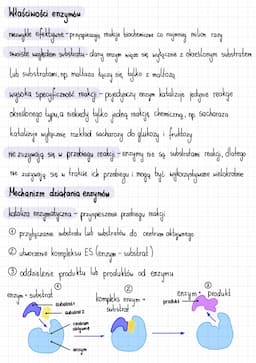 Właściwości enzymów
niezwykle efektywne - przyspieszają reakcje biochemiczne co najmniej milion razy
swoiste względem substratu - dany enzym wiąże się wyłącznie z określonym substratem
lub substratami, np. maltaza łączy się tylko z maltozą
wysoka specyficzność reakcji - pojedynczy enzym katalizuje jedynie reakcje
określonego typu, a niekiedy tylko jedną reakcję chemiczną, np. sacharaza
katalizuje wyłącznie rozkład sacharozy do glukozy i fruktozy
nie zużywają się w przebiegu reakcji - enzymy nie są substratami reakcji, dlatego
nie zużywają się w trakcie ich przebiegu i mogą być wykorzystywane wielokrotnie
Mechanizm działania enzymów
kataliza enzymatyczna - przyspieszenie przebiegu reakcji
① przyłączanie substratu lub substratów do centrum aktywnego
② utworzenie kompleksu ES (enzym - substrat)
③ oddzielenie produktu lub produktów od enzymu
①
enzym + substrat
substrat 1
substrat 2
centrum
aktywne
enzym
②
kompleks enzym +
substrat
③
enzym + produkt
produkt